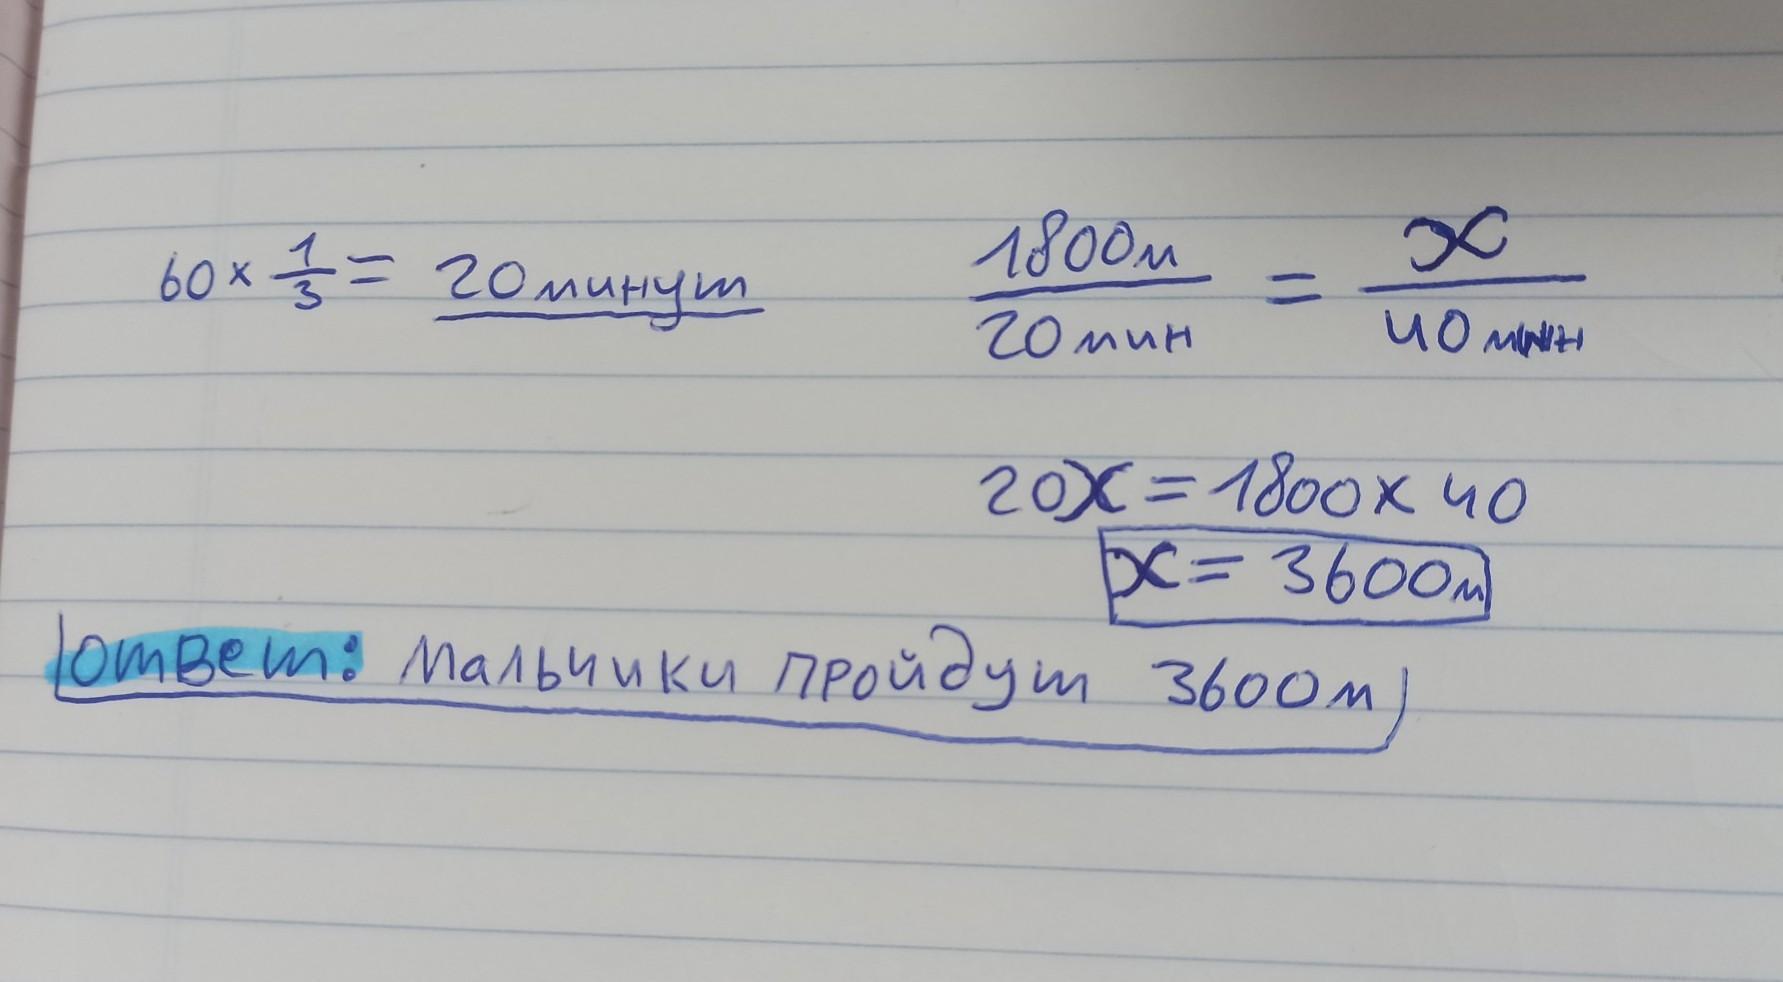 60 × 1/3 = 20 минут
1800м/20 мин = x/40 мин
20x = 1800 x 40
x = 3600м
Ответ: Мальчики пройдут 3600м